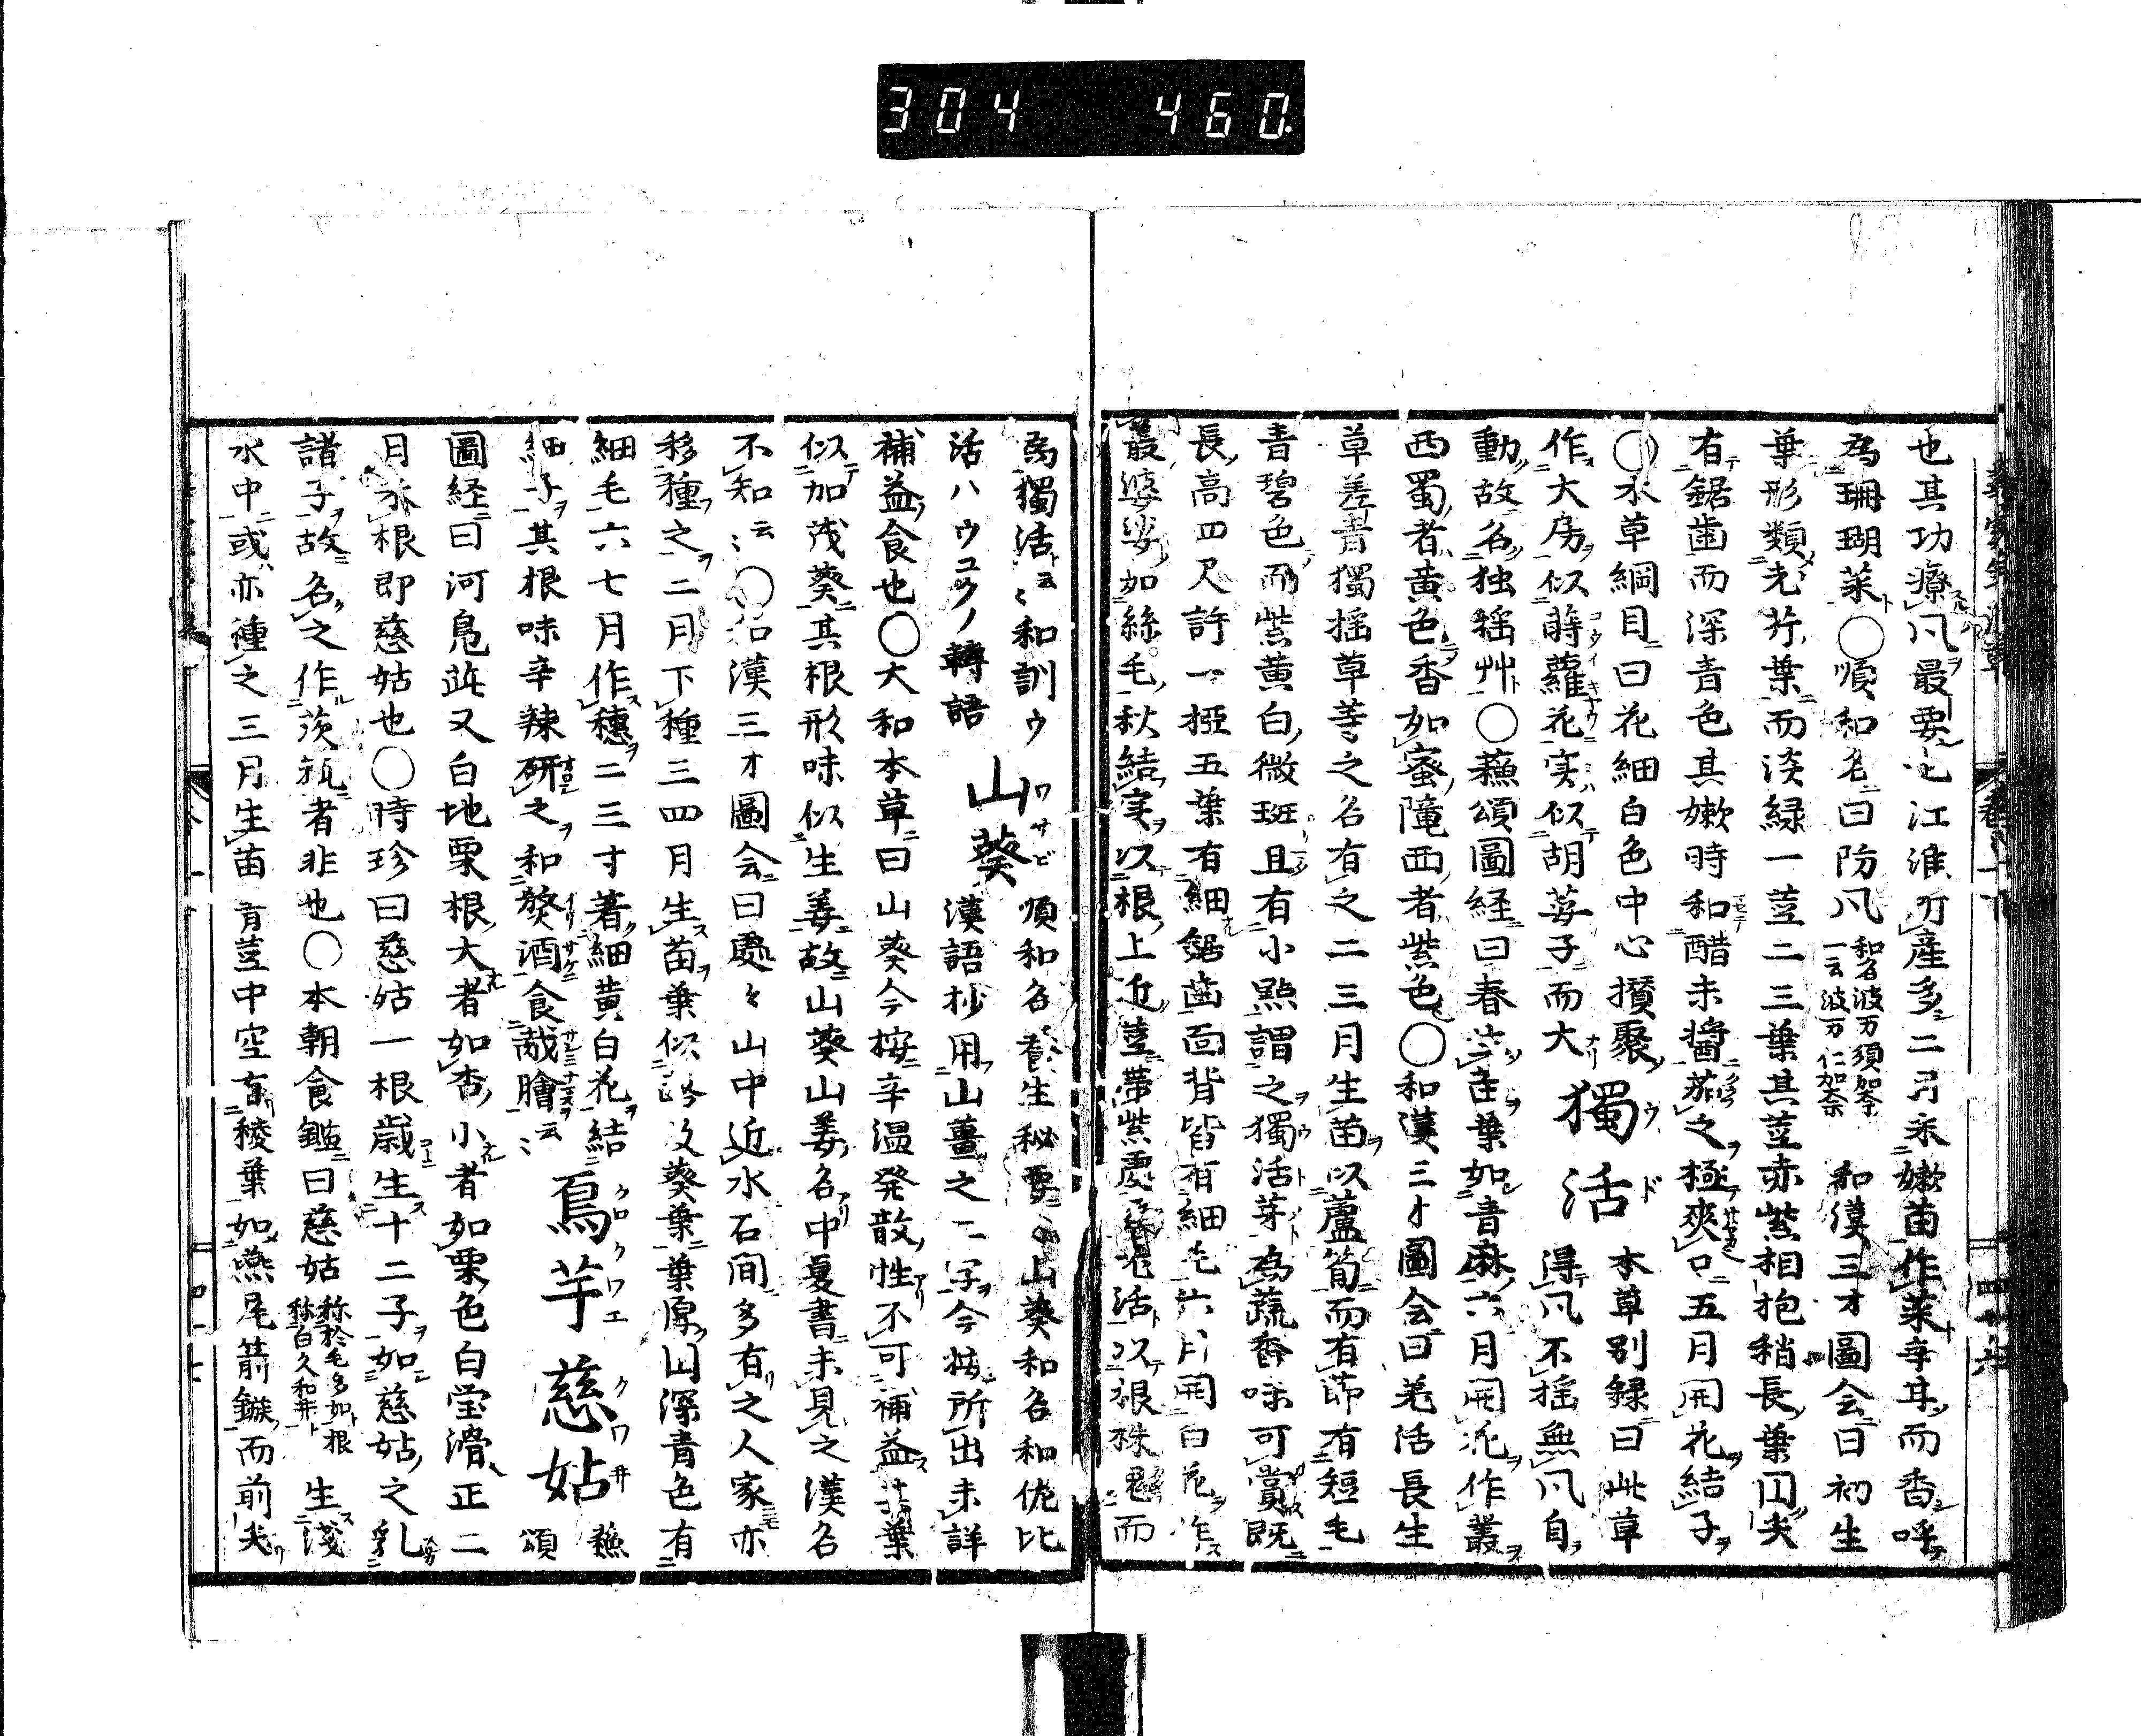 304 460
也其功療風最要也江淮所産多二月采嫩苗作菜辛甘而香呼
為珊瑚菜○順和名曰防風和名波万須加奈一云波万仁加奈 和漢三才圖会曰初生
葉形類老芹葉而淡緑一茎二三葉其茎赤紫相抱稍長葉円尖
有鋸歯而深青色其嫩時和醋未醤茹之極爽口五月開花結子
○本草綱目曰花細白色中心攅聚 獨活 ウド 本草別録曰此草
作大房似蒔蘿花実似胡荽子而大 得風不揺無風自
動故名独揺艸○蘇頌圖経曰春生苗葉如青麻六月開花作叢
西蜀者黄色香如蜜隴西者紫色○和漢三才圖会曰羌活長生
草羌青獨揺草等之名有之二三月生苗以蘆筍而有節有短毛
青碧色而紫黄白微斑且有小點謂之獨活芽為蔬香味可賞既
長高四尺許一椏五葉有細鋸歯面背皆有細毛六月開白花作
叢婆娑如絲毛秋結実以根上近茎帯紫處 羌活以根殊魁而
為獨活云〻和訓ウ
活ハウコクノ轉語 山葵 ワサビ 順和名養生秘要云山葵和名和佐比
漢語抄用山薑之二字今按所出未詳
補益食也○大和本草曰山葵今按辛温発散性不可補益 葉
似加茂葵其根形味似生姜故山葵山姜名中夏書未見之漢名
不知云〻○和漢三才圖会曰處々山中近水石間多有之人家亦
移種之二月下種三四月生苗葉似 葵葉葉厚円深青色有
細毛六七月作穗二三寸著細黄白花結
細子其根味辛辣研之和熬酒食戡膾云〻 烏芋 クロクワエ 慈姑 クワ井 蘇頌
圖経曰河鳧茈又白地栗根大者如杏小者如栗色白瑩滑正二
月采根即慈姑也○時珍曰慈姑一根歳生十二子如慈姑之乳
諸子故名之作茨菰者非也○本朝食鑑曰慈姑称於毛多加ト根称白久和井ト 生淺
水中或亦種之三月生苗青茎中空有稜葉如燕尾箭鏃而前尖